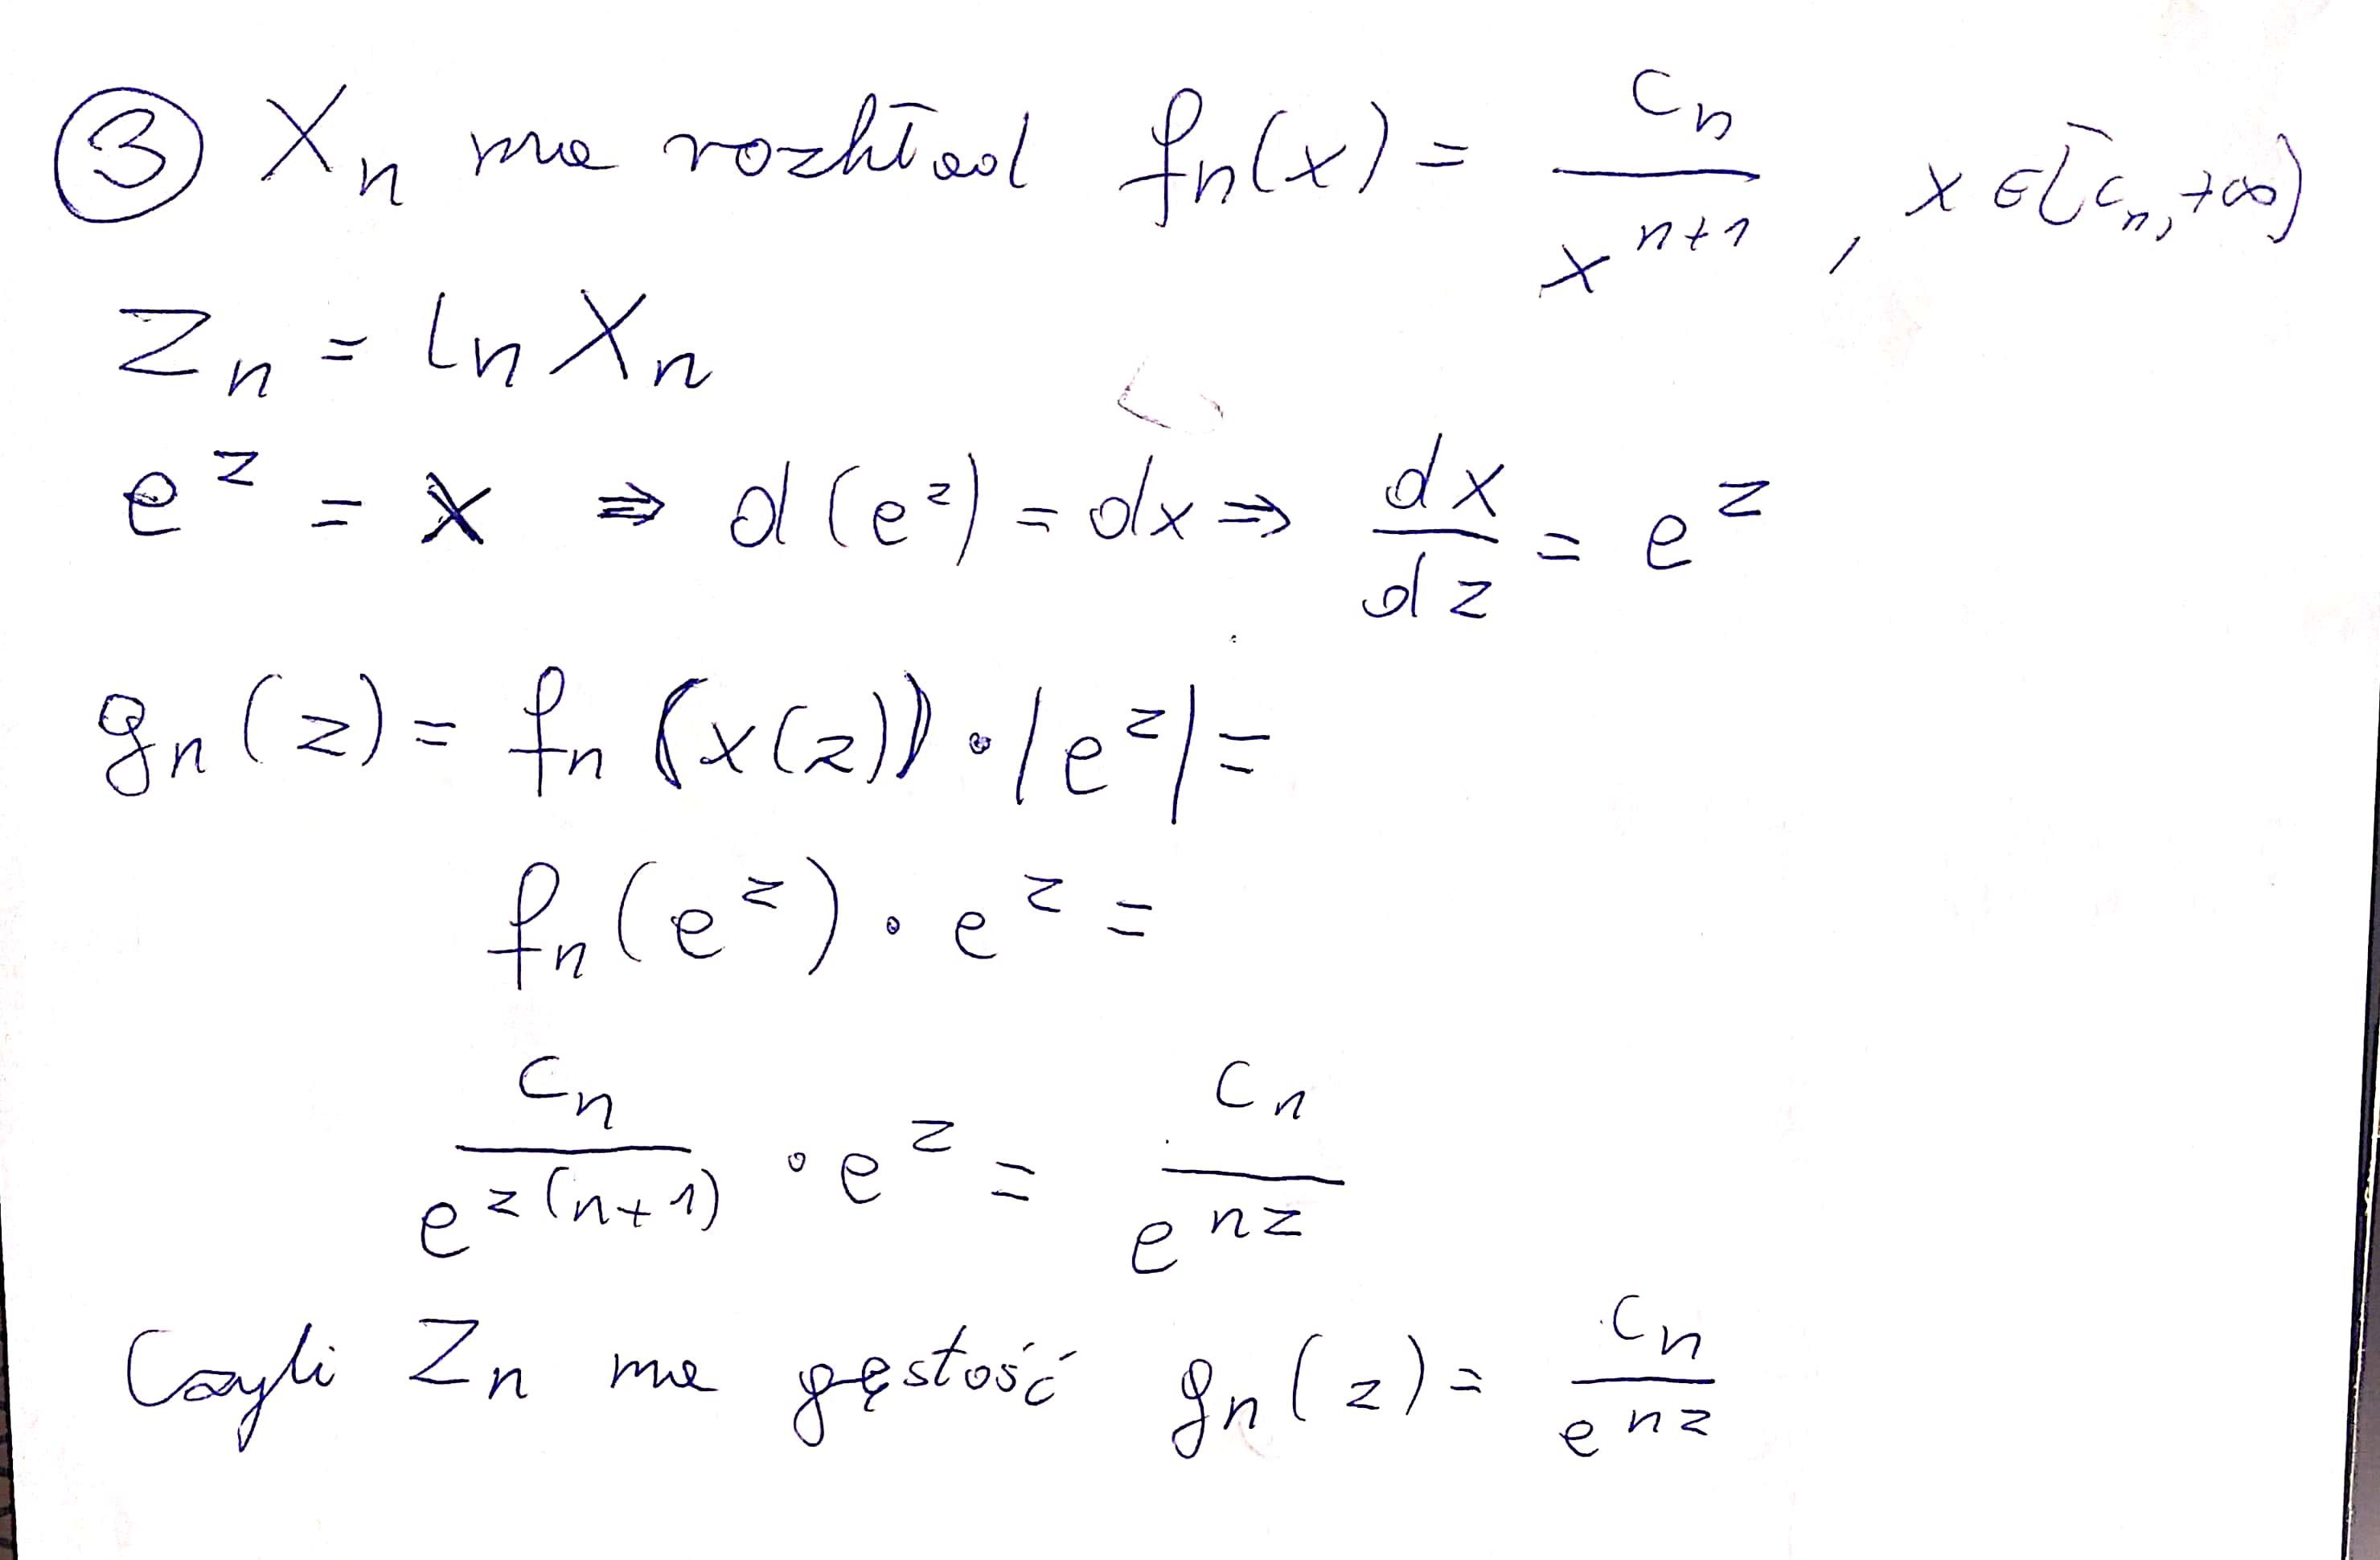 ③ Xₙ ma rozkład fₙ(x) = cₙ / xⁿ⁺¹ , x ∈ [cₙ, +∞)
Zₙ = ln Xₙ
e^z = x ⇒ d(e^z) = dx ⇒ dx/dz = e^z
gₙ(z) = fₙ(x(z)) · |e^z| =
fₙ(e^z) · e^z =
cₙ / e^{z(n+1)} · e^z = cₙ / e^{nz}
Czyli Zₙ ma gęstość gₙ(z) = cₙ / e^{nz}